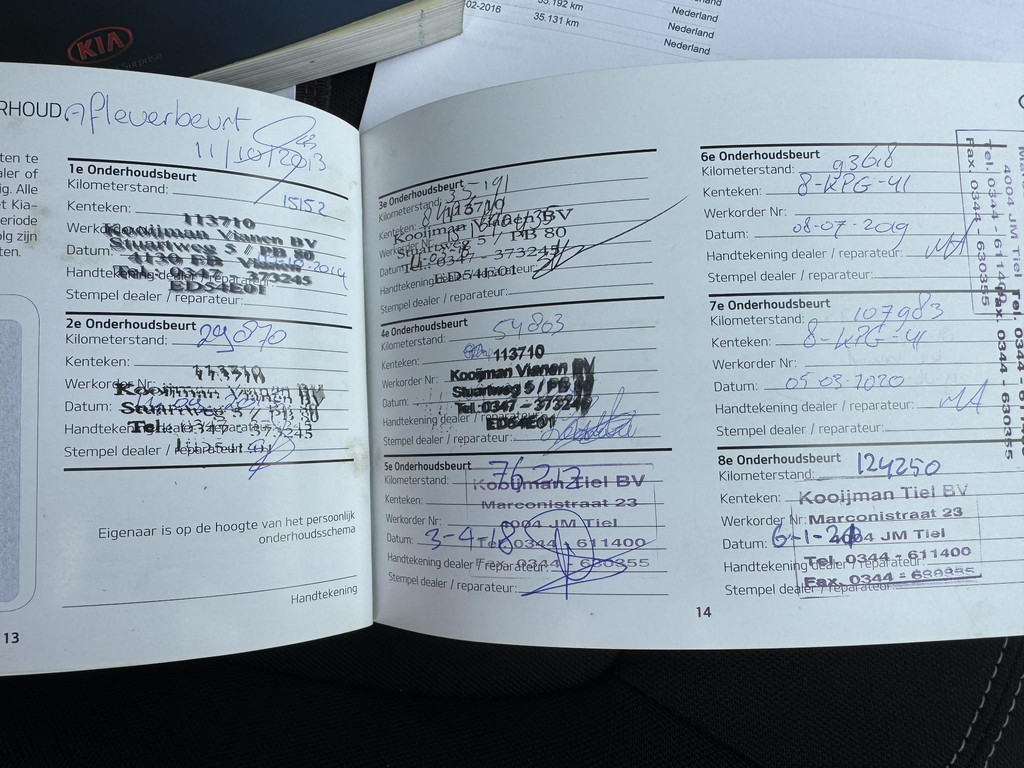 KIA
Surprise
35.192 km
02-2016
35.131 km
Nederland
Nederland
Nederland
RHOUD Afleverbeurt
11/10/2013
ten te
aler of
ig. Alle
et Kia-
eriode
olg zijn
ten.
1e Onderhoudsbeurt
Kilometerstand: 15152
Kenteken:
113710
Kooijman Vianen BV
Stuartweg 5 / PB 80
Datum:
4130 EB Vianen
Handtekening dealer / reparateur:
Tel.: 0347 - 373245
ED54E01
Stempel dealer / reparateur:
2e Onderhoudsbeurt
Kilometerstand: 29870
Kenteken:
113710
Werkorder Nr:
Kooijman Vianen BV
Datum:
Stuartweg 5 / PB 80
Handtekening dealer / reparateur:
Tel.: 0347 - 373245
Stempel dealer / reparateur:
Eigenaar is op de hoogte van het persoonlijk
onderhoudsschema
Handtekening
13
3e Onderhoudsbeurt
Kilometerstand: 35191
Kenteken:
113710
Kooijman Vianen BV
Werkorder Nr:
Stuartweg 5 / PB 80
Datum:
Tel.: 0347 - 373245
Handtekening dealer / reparateur:
ED54E01
Stempel dealer / reparateur:
4e Onderhoudsbeurt
Kilometerstand: 54863
Kenteken:
113710
Kooijman Vianen BV
Werkorder Nr:
Stuartweg 5 / PB 80
Datum:
Tel.: 0347 - 373245
Handtekening dealer / reparateur:
ED54E01
Stempel dealer / reparateur:
5e Onderhoudsbeurt
Kilometerstand: 76212
Kooijman Tiel BV
Kenteken:
Marconistraat 23
Werkorder Nr:
4004 JM Tiel
Datum: 3-4-18
Tel. 0344 - 611400
Handtekening dealer / reparateur:
Fax. 0344 - 630355
Stempel dealer / reparateur:
14
6e Onderhoudsbeurt
Kilometerstand: 93618
Kenteken: 8-KPG-41
Werkorder Nr:
Datum: 08-07-2019
Handtekening dealer / reparateur: MA
Stempel dealer / reparateur:
7e Onderhoudsbeurt
Kilometerstand: 107983
Kenteken: 8-KPG-41
Werkorder Nr:
Datum: 05-03-2020
Handtekening dealer / reparateur: MA
Stempel dealer / reparateur:
8e Onderhoudsbeurt
Kilometerstand: 124250
Kenteken: Kooijman Tiel BV
Werkorder Nr: Marconistraat 23
Datum: 6-1-21
4004 JM Tiel
Tel. 0344 - 611400
Handtekening dealer / reparateur:
Fax. 0344 - 630355
Stempel dealer / reparateur:
4004 JM Tiel
Tel. 0344 - 611400
Fax. 0344 - 630355
Tel. 0344
Fax. 0344 - 630355